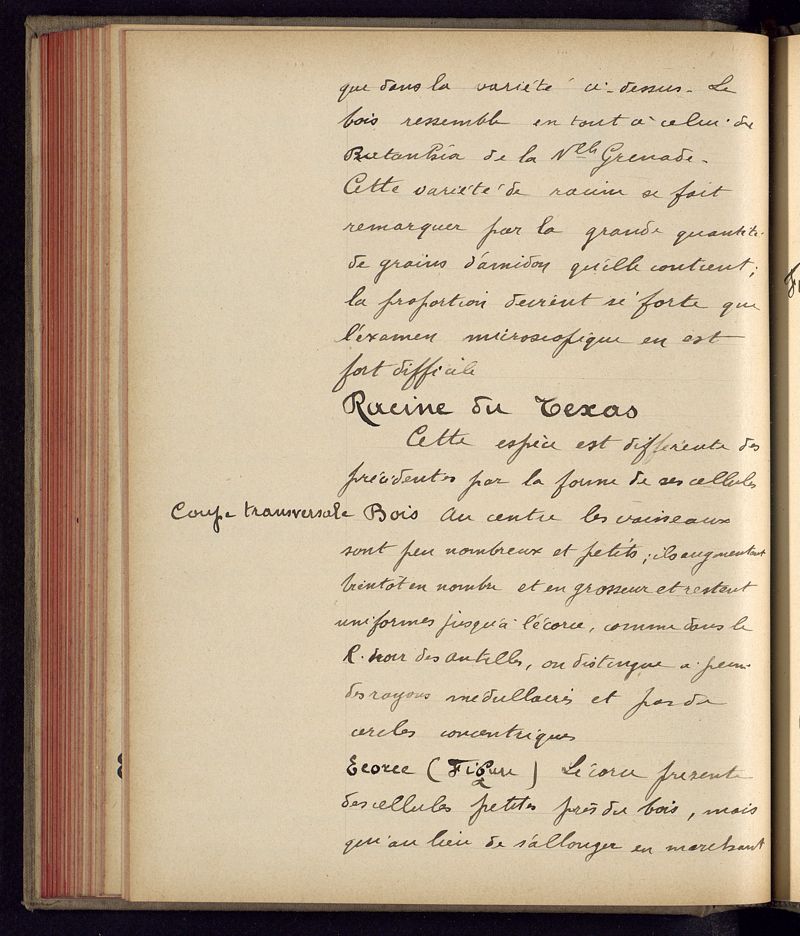 que dans la variété ci-dessus. Le
bois ressemble en tout à celui du
Ratanhia de la Nelle Grenade.
Cette variété de racine se fait
remarquer par la grande quantité
de grains d'amidon qu'elle contient;
la proportion devient si forte que
l'examen microscopique en est
fort difficile
Racine du Texas
Cette espèce est différente des
précédentes par la forme de ses cellules
Coupe transversale Bois Au centre les vaisseaux
sont peu nombreux et petits; ils augmentent
bientôt en nombre et en grosseur et restent
uniformes jusqu'à l'écorce, comme dans le
R. noir des antilles, on distingue à peine
des rayons médullaires et pas de
cercles concentriques
Ecorce (Figure ) L'écorce présente
des cellules petites près du bois, mais
qu'au lieu de s'allonger en marchant